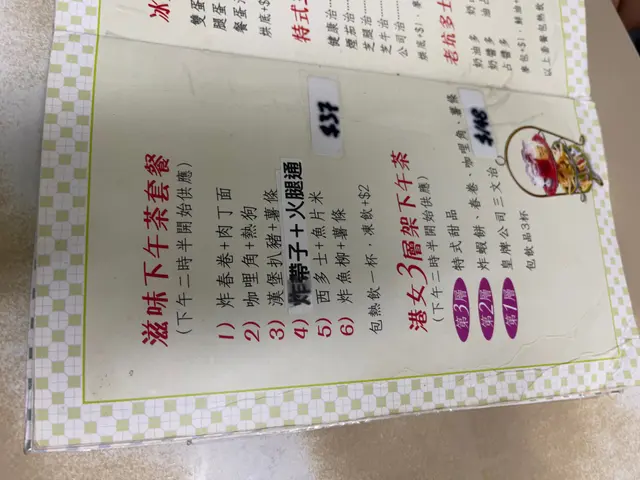 滋味下午茶套餐
(下午二時半開始供應)
1) 炸春卷+肉丁面
2) 咖喱角+熱狗
3) 漢堡扒豬+薯條
4) 炸帶子+火腿通
5) 西多士+魚片米
6) 炸魚柳+薯條
包熱飲一杯，凍飲+$2
$37
港女3層架下午茶
(下午二時半開始供應)
第3層 特式甜品
第2層 炸蝦餅、春卷、咖哩角、薯條
第1層 皇牌公司三文治
包飲品3杯
$148
特式
健康治
煙茄治
芝腿治
芝牛治
公司治
老坑多士
奶油多
奶醬多
占醬多
以上套餐包熱飲